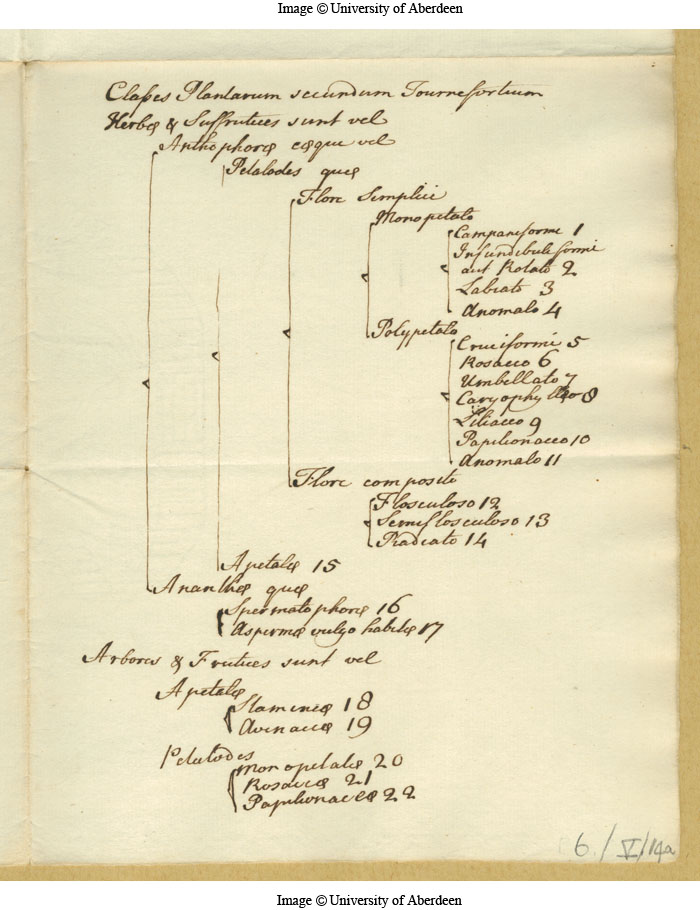 Image © University of Aberdeen
Classes Plantarum secundum Tournefortium
Herbæ & Suffrutices sunt vel
Anthophoræ eæque vel
Petalodes quæ
Flore Semplici
Monopetalo
Campaniformi 1
Infundibuliformi
aut Rotato 2
Labiato 3
Anomalo 4
Polypetalo
Cruciformi 5
Rosaceo 6
Umbellato 7
Caryophyllæo 8
Liliaceo 9
Papilionaceo 10
Anomalo 11
Flore composito
Flosculoso 12
Semiflosculoso 13
Radiato 14
Apetalæ 15
Ananthæ quæ
Spermatophoræ 16
Aspermæ vulgo habitæ 17
Arbores & Frutices sunt vel
Apetalæ
Stamineæ 18
19
Petalodes
Monopetalæ 20
Rosaceæ 21
Papilionaceæ 22
6./V/14a
Image © University of Aberdeen